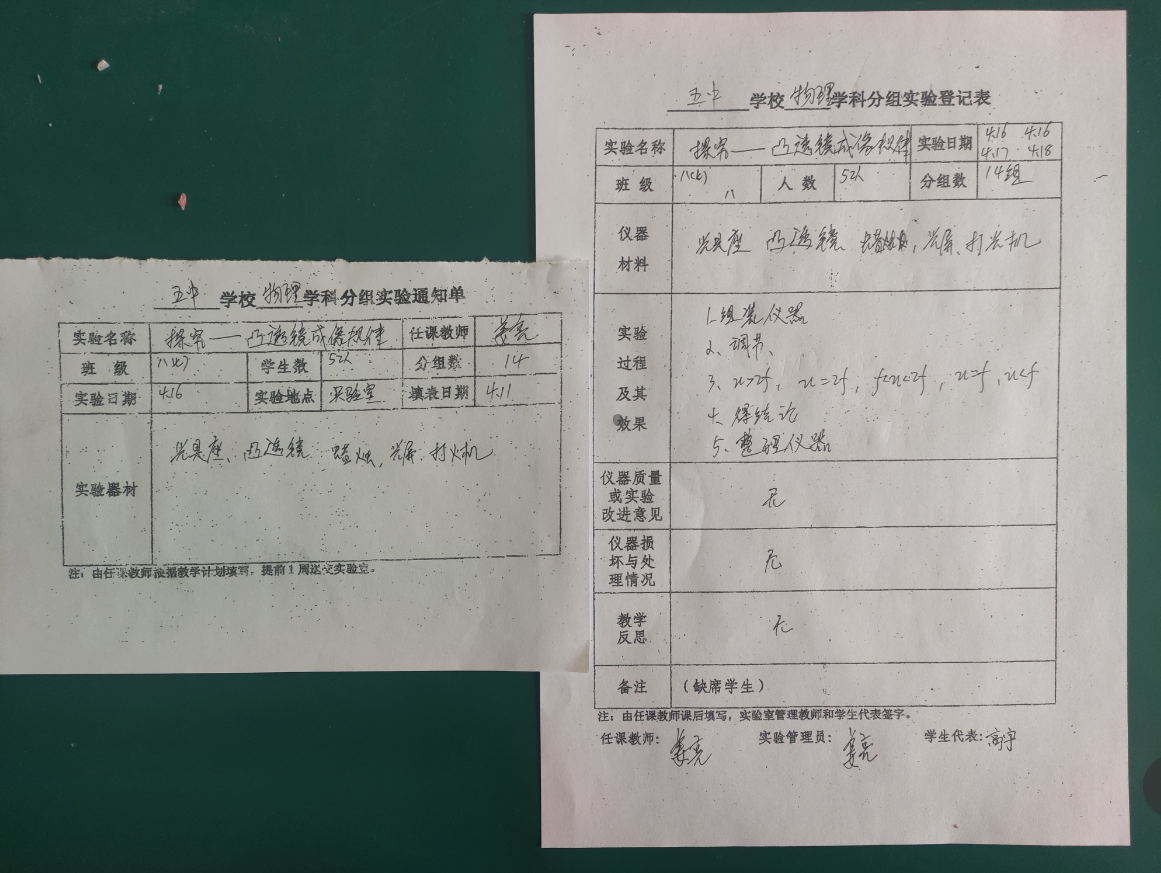 五中 学校 物理 学科分组实验通知单
实验名称 探究——凸透镜成像规律 任课教师 姜亮
班 级 八(七) 学生数 52人 分组数 14
实验日期 4.16 实验地点 实验室 填表日期 4.11
实验器材 光具座、凸透镜 蜡烛,光屏、打火机
注:由任课教师依据教学计划填写,提前1周送交实验室。
五中 学校 物理 学科分组实验登记表
实验名称 探究——凸透镜成像规律 实验日期 4.16 4.16
4.17 4.18
班 级 八(七) 人 数 52人 分组数 14组
八
仪器
材料
光具座 凸透镜 蜡烛,光屏、打火机
实验
过程
及其
效果
1.组装仪器
2、调节、
3、u>2f, u=2f, f<u<2f, u=f, u<f
4、得结论
5、整理仪器
仪器质量
或实验
改进意见
无
仪器损
坏与处
理情况
无
教学
反思
无
备注 (缺席学生)
注:由任课教师课后填写,实验室管理教师和学生代表签字。
任课教师: 姜亮 实验管理员: 姜亮 学生代表: 高宇